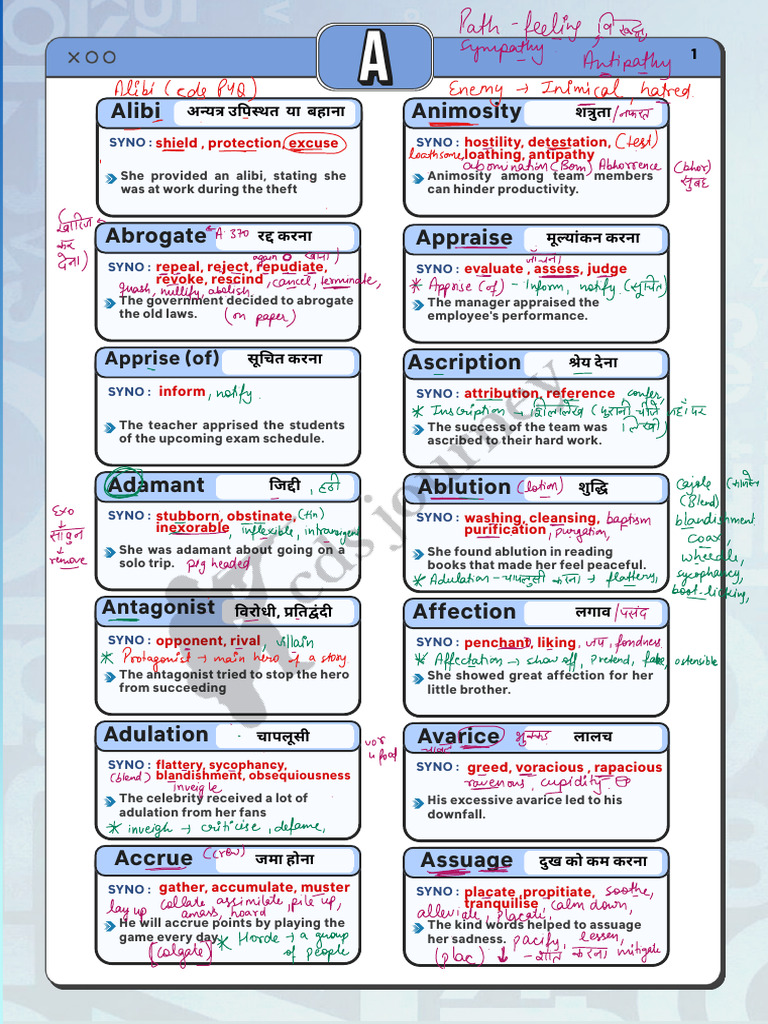 Path - feeling,
Sympathy
Antipathy
A
1
Alibi (cds PYQ)
Enemy → Inimical, hatred
Alibi अन्यत्र उपिस्थत या बहाना
SYNO : shield , protection, excuse
She provided an alibi, stating she
was at work during the theft
Animosity शत्रुता /नफरत
SYNO : hostility, detestation, (test)
loathsome loathing, antipathy
abomination (Bom) Abhorrence (bhor)
सुबह
Animosity among team members
can hinder productivity.
खारिज
कर
देना)
Abrogate A·370 रद्द करना
again
SYNO : repeal, reject, repudiate,
revoke, rescind, cancel, terminate,
quash, nullify, abolish
The government decided to abrogate
the old laws. (on paper)
Appraise मूल्यांकन करना
जाँचना
SYNO : evaluate , assess, judge
* Apprise (of) - Inform, notify (सूचित)
The manager appraised the
employee's performance.
Apprise (of) सूचित करना
SYNO : inform , notify
The teacher apprised the students
of the upcoming exam schedule.
Ascription श्रेय देना
SYNO : attribution, reference confer,
* Inscription → शिलालेख (पुरानी चीजें जहाँ पर
लिखी)
The success of the team was
ascribed to their hard work.
Adamant जिद्दी , हठी
SYNO : stubborn, obstinate, (tin)
inexorable, inflexible, intransigent
She was adamant about going on a
solo trip. pig headed
Exo
↓
साबुन
↓
remove
Ablution (lotion) शुद्धि
SYNO : washing, cleansing, baptism
purification, purgation,
She found ablution in reading
books that made her feel peaceful.
* Adulation - चापलूसी करना → flattery,
cajole
(Blend)
blandishment
coax,
wheedle,
sycophancy,
boot-licking,
Antagonist विरोधी, प्रतिद्वंदी
SYNO : opponent, rival , villain
* Protagonist → main hero of a story
The antagonist tried to stop the hero
from succeeding
Affection लगाव /पसंद
SYNO : penchant, liking, fondness
* Affectation → show off, pretend, fake, ostensible
She showed great affection for her
little brother.
Adulation चापलूसी
SYNO : flattery, sycophancy,
(blend) blandishment, obsequiousness
Inveigle
The celebrity received a lot of
adulation from her fans
* inveigh → criticise, defame,
Avarice लालच
vor
↳ food
SYNO : greed, voracious , rapacious
ravenous, cupidity
His excessive avarice led to his
downfall.
Accrue (crew) जमा होना
SYNO : gather, accumulate, muster
lay up collate assimilate, pile up,
amass, hoard
He will accrue points by playing the
game every day
* Horde → a group
of people
(colgate)
Assuage दुख को कम करना
SYNO : placate, propitiate, soothe,
tranquilise, calm down,
alleviate, placate,
The kind words helped to assuage
her sadness. pacify, lessen,
(plac) ↓ - शांत करना mitigate
cds journey